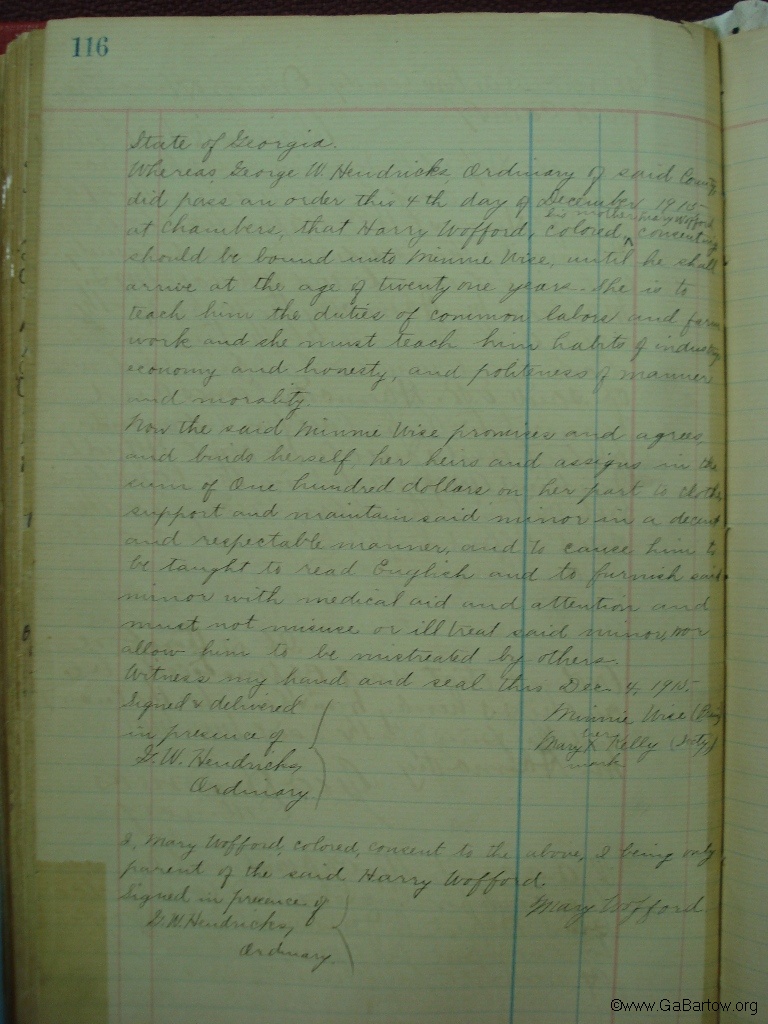 116
State of Georgia.
Whereas George W. Hendricks, Ordinary of said County
did pass an order this 4th day of December 1915
his mother Mary Wofford
at chambers, that Harry Wofford, colored, ^ consenting
should be bound unto Minnie Wise, until he shall
arrive at the age of twenty one years. She is to
teach him the duties of common labors and farm
work and she must teach him habits of industry
economy and honesty, and politeness of manner
and morality.
Now the said Minnie Wise promises and agrees,
and binds herself, her heirs and assigns in the
sum of One hundred dollars on her part to clothe
support and maintain said minor in a decent
and respectable manner, and to cause him to
be taught to read English and to furnish said
minor with medical aid and attention and
must not misuse or ill treat said minor, nor
allow him to be mistreated by others.
Witness my hand and seal this Dec. 4, 1915.
Signed & delivered
Minnie Wise
in presence of
her
Mary X Kelly
mark
G.W. Hendricks,
Ordinary.
I, Mary Wofford, colored, consent to the above, I being only
parent of the said Harry Wofford.
Signed in presence of
Mary Wofford
G.W. Hendricks,
Ordinary.
©www.GaBartow.org